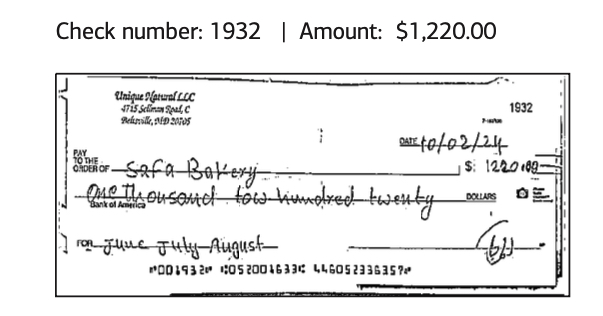 Check number: 1932 | Amount: $1,220.00
Unique Natural LLC
4715 Sellman Road, C
Beltsville, MD 20705
1932
DATE 10/02/24
PAY
TO THE
ORDER OF Safa Bakery $ 1220.00
One Thousand tow hundred twenty DOLLARS
Bank of America
FOR June July August
⑈001932⑈ ⑆052001633⑆ 446052336357⑈